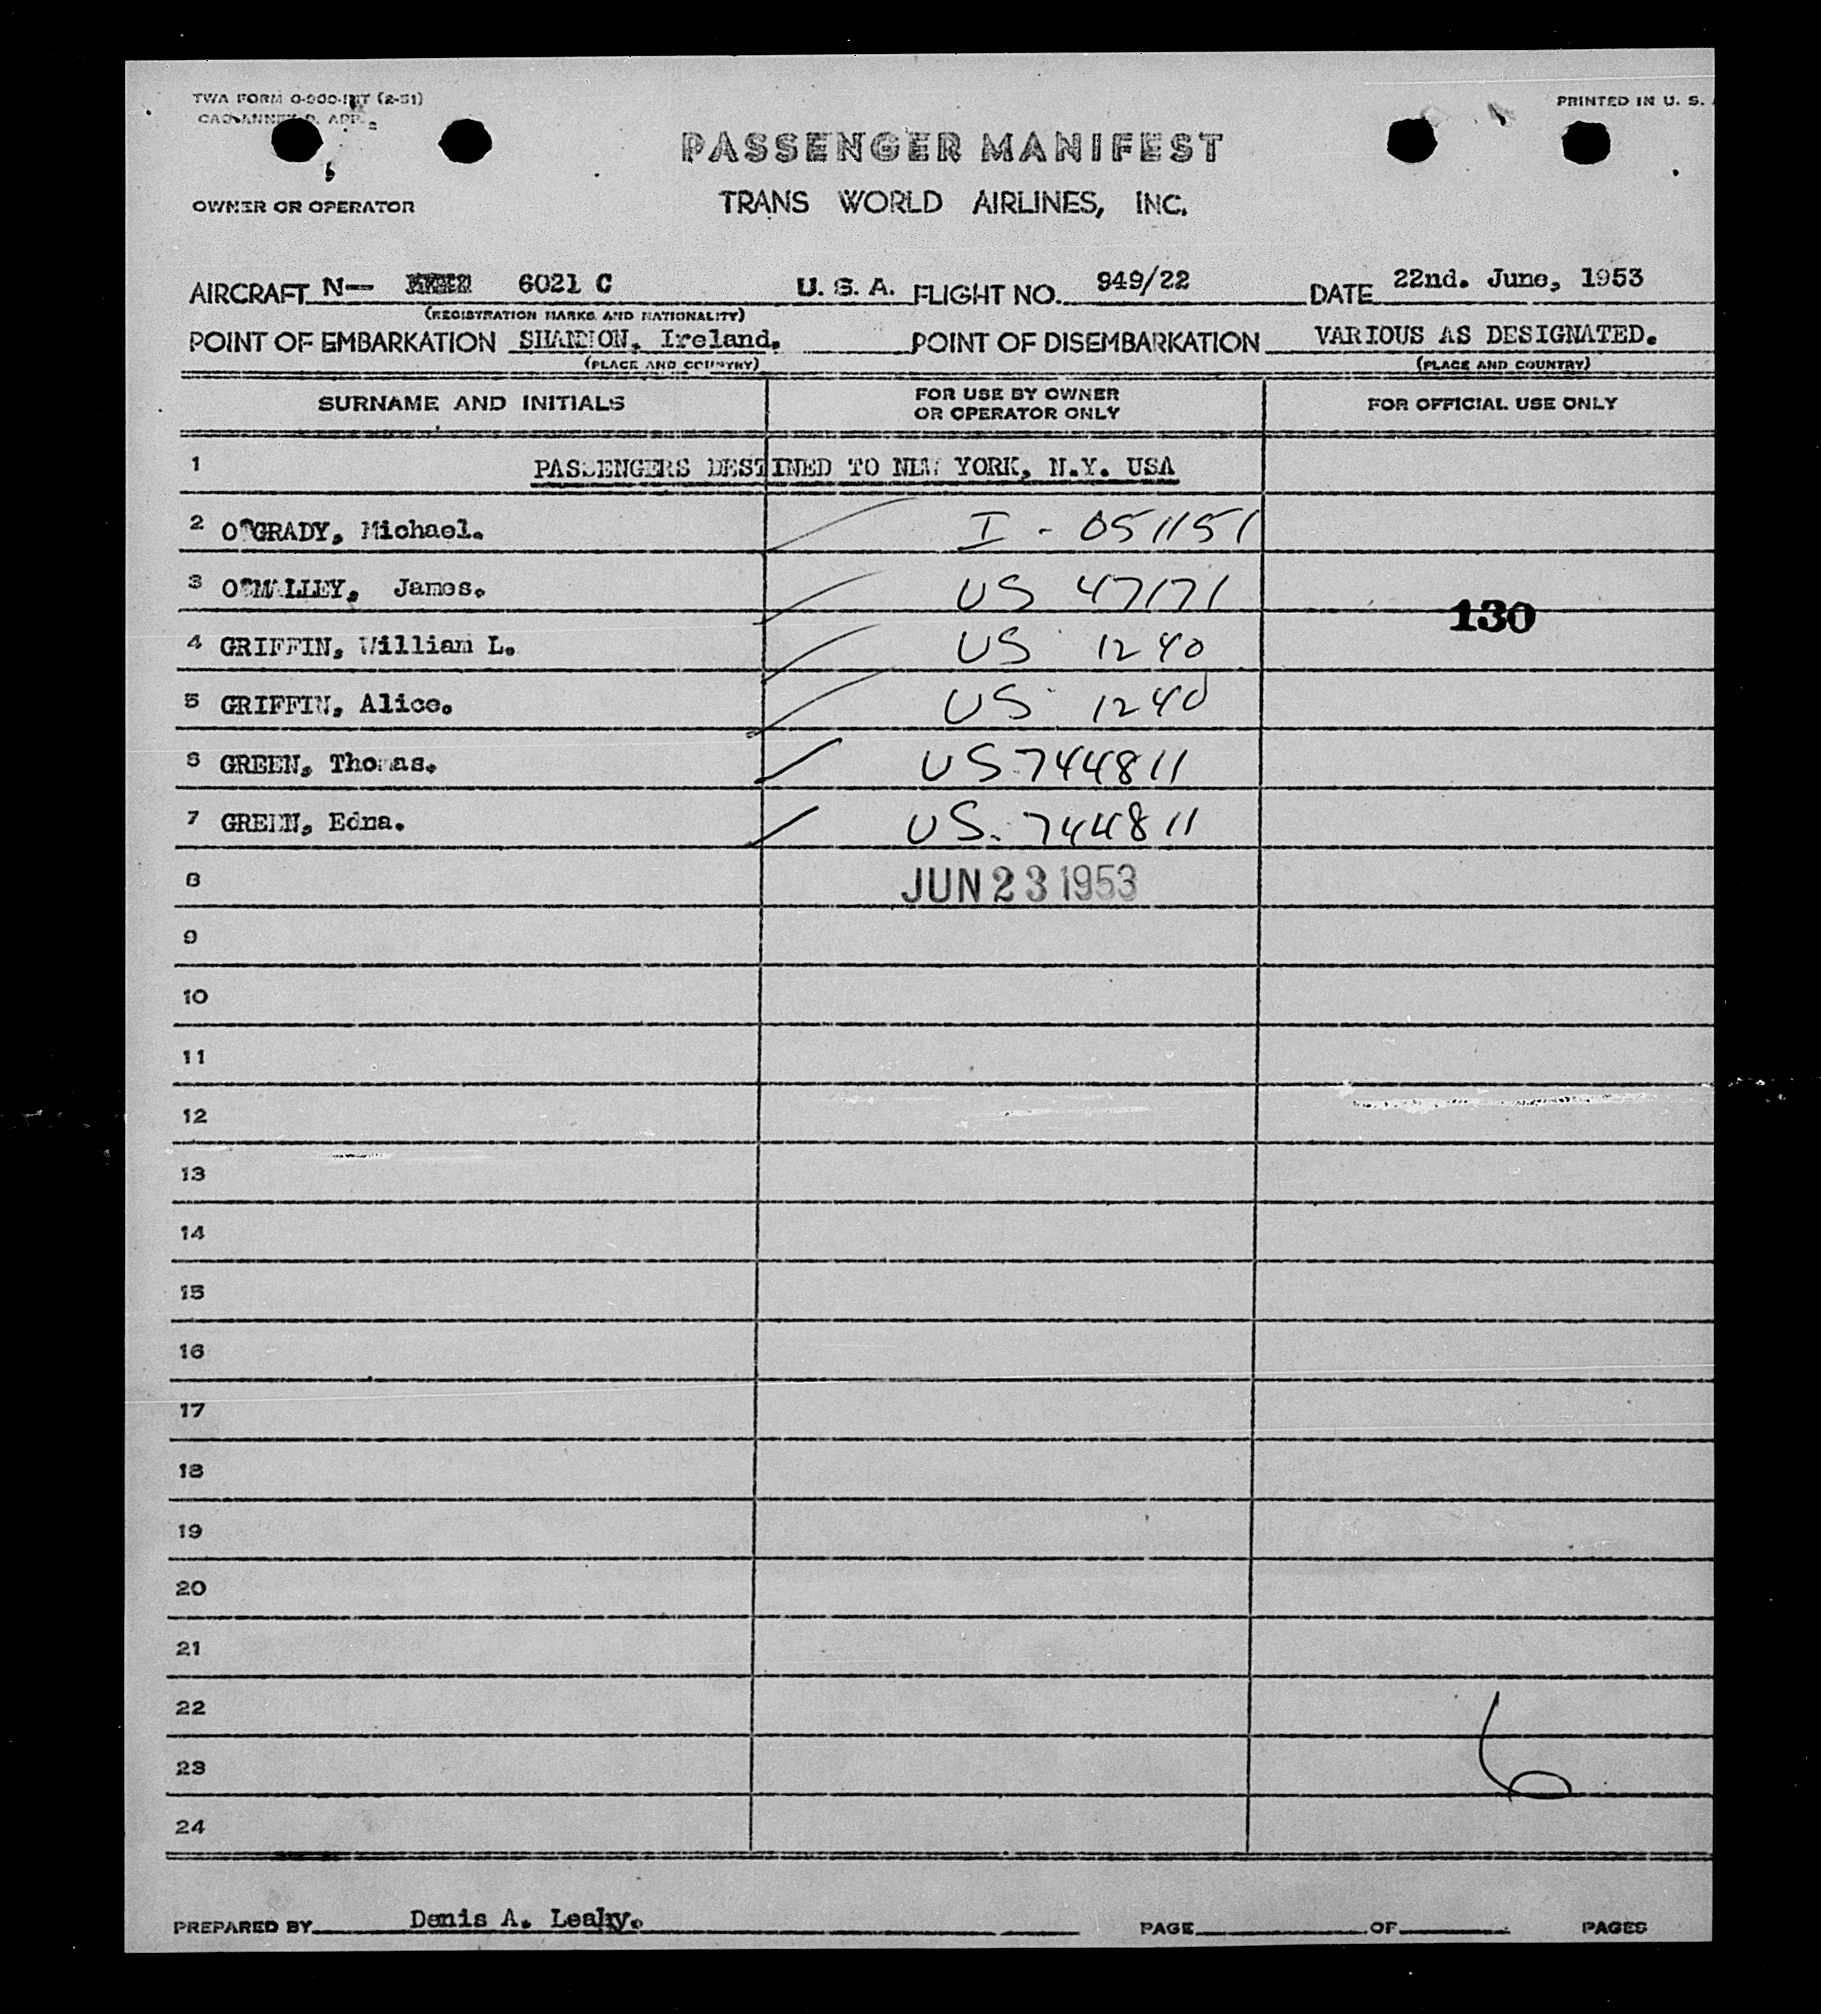 TWA FORM O-900-INT (2-51)
PRINTED IN U. S.
PASSENGER MANIFEST
OWNER OR OPERATOR
TRANS WORLD AIRLINES, INC.
AIRCRAFT N- 6021 C U. S. A. FLIGHT NO. 949/22 DATE 22nd. June, 1953
(REGISTRATION MARKS AND NATIONALITY)
POINT OF EMBARKATION SHANNON, Ireland. POINT OF DISEMBARKATION VARIOUS AS DESIGNATED.
(PLACE AND COUNTRY) (PLACE AND COUNTRY)
SURNAME AND INITIALS FOR USE BY OWNER OR OPERATOR ONLY FOR OFFICIAL USE ONLY
1 PASSENGERS DESTINED TO NEW YORK, N.Y. USA
2 O'GRADY, Michael. I - 051151
3 O'MALLEY, James. US 47171
130
4 GRIFFIN, William L. US 1240
5 GRIFFIN, Alice. US 1240
6 GREEN, Thomas. US 744811
7 GREEN, Edna. US. 744811
8 JUN 23 1953
9
10
11
12
13
14
15
16
17
18
19
20
21
22
23 6
24
PREPARED BY Denis A. Leahy. PAGE OF PAGES